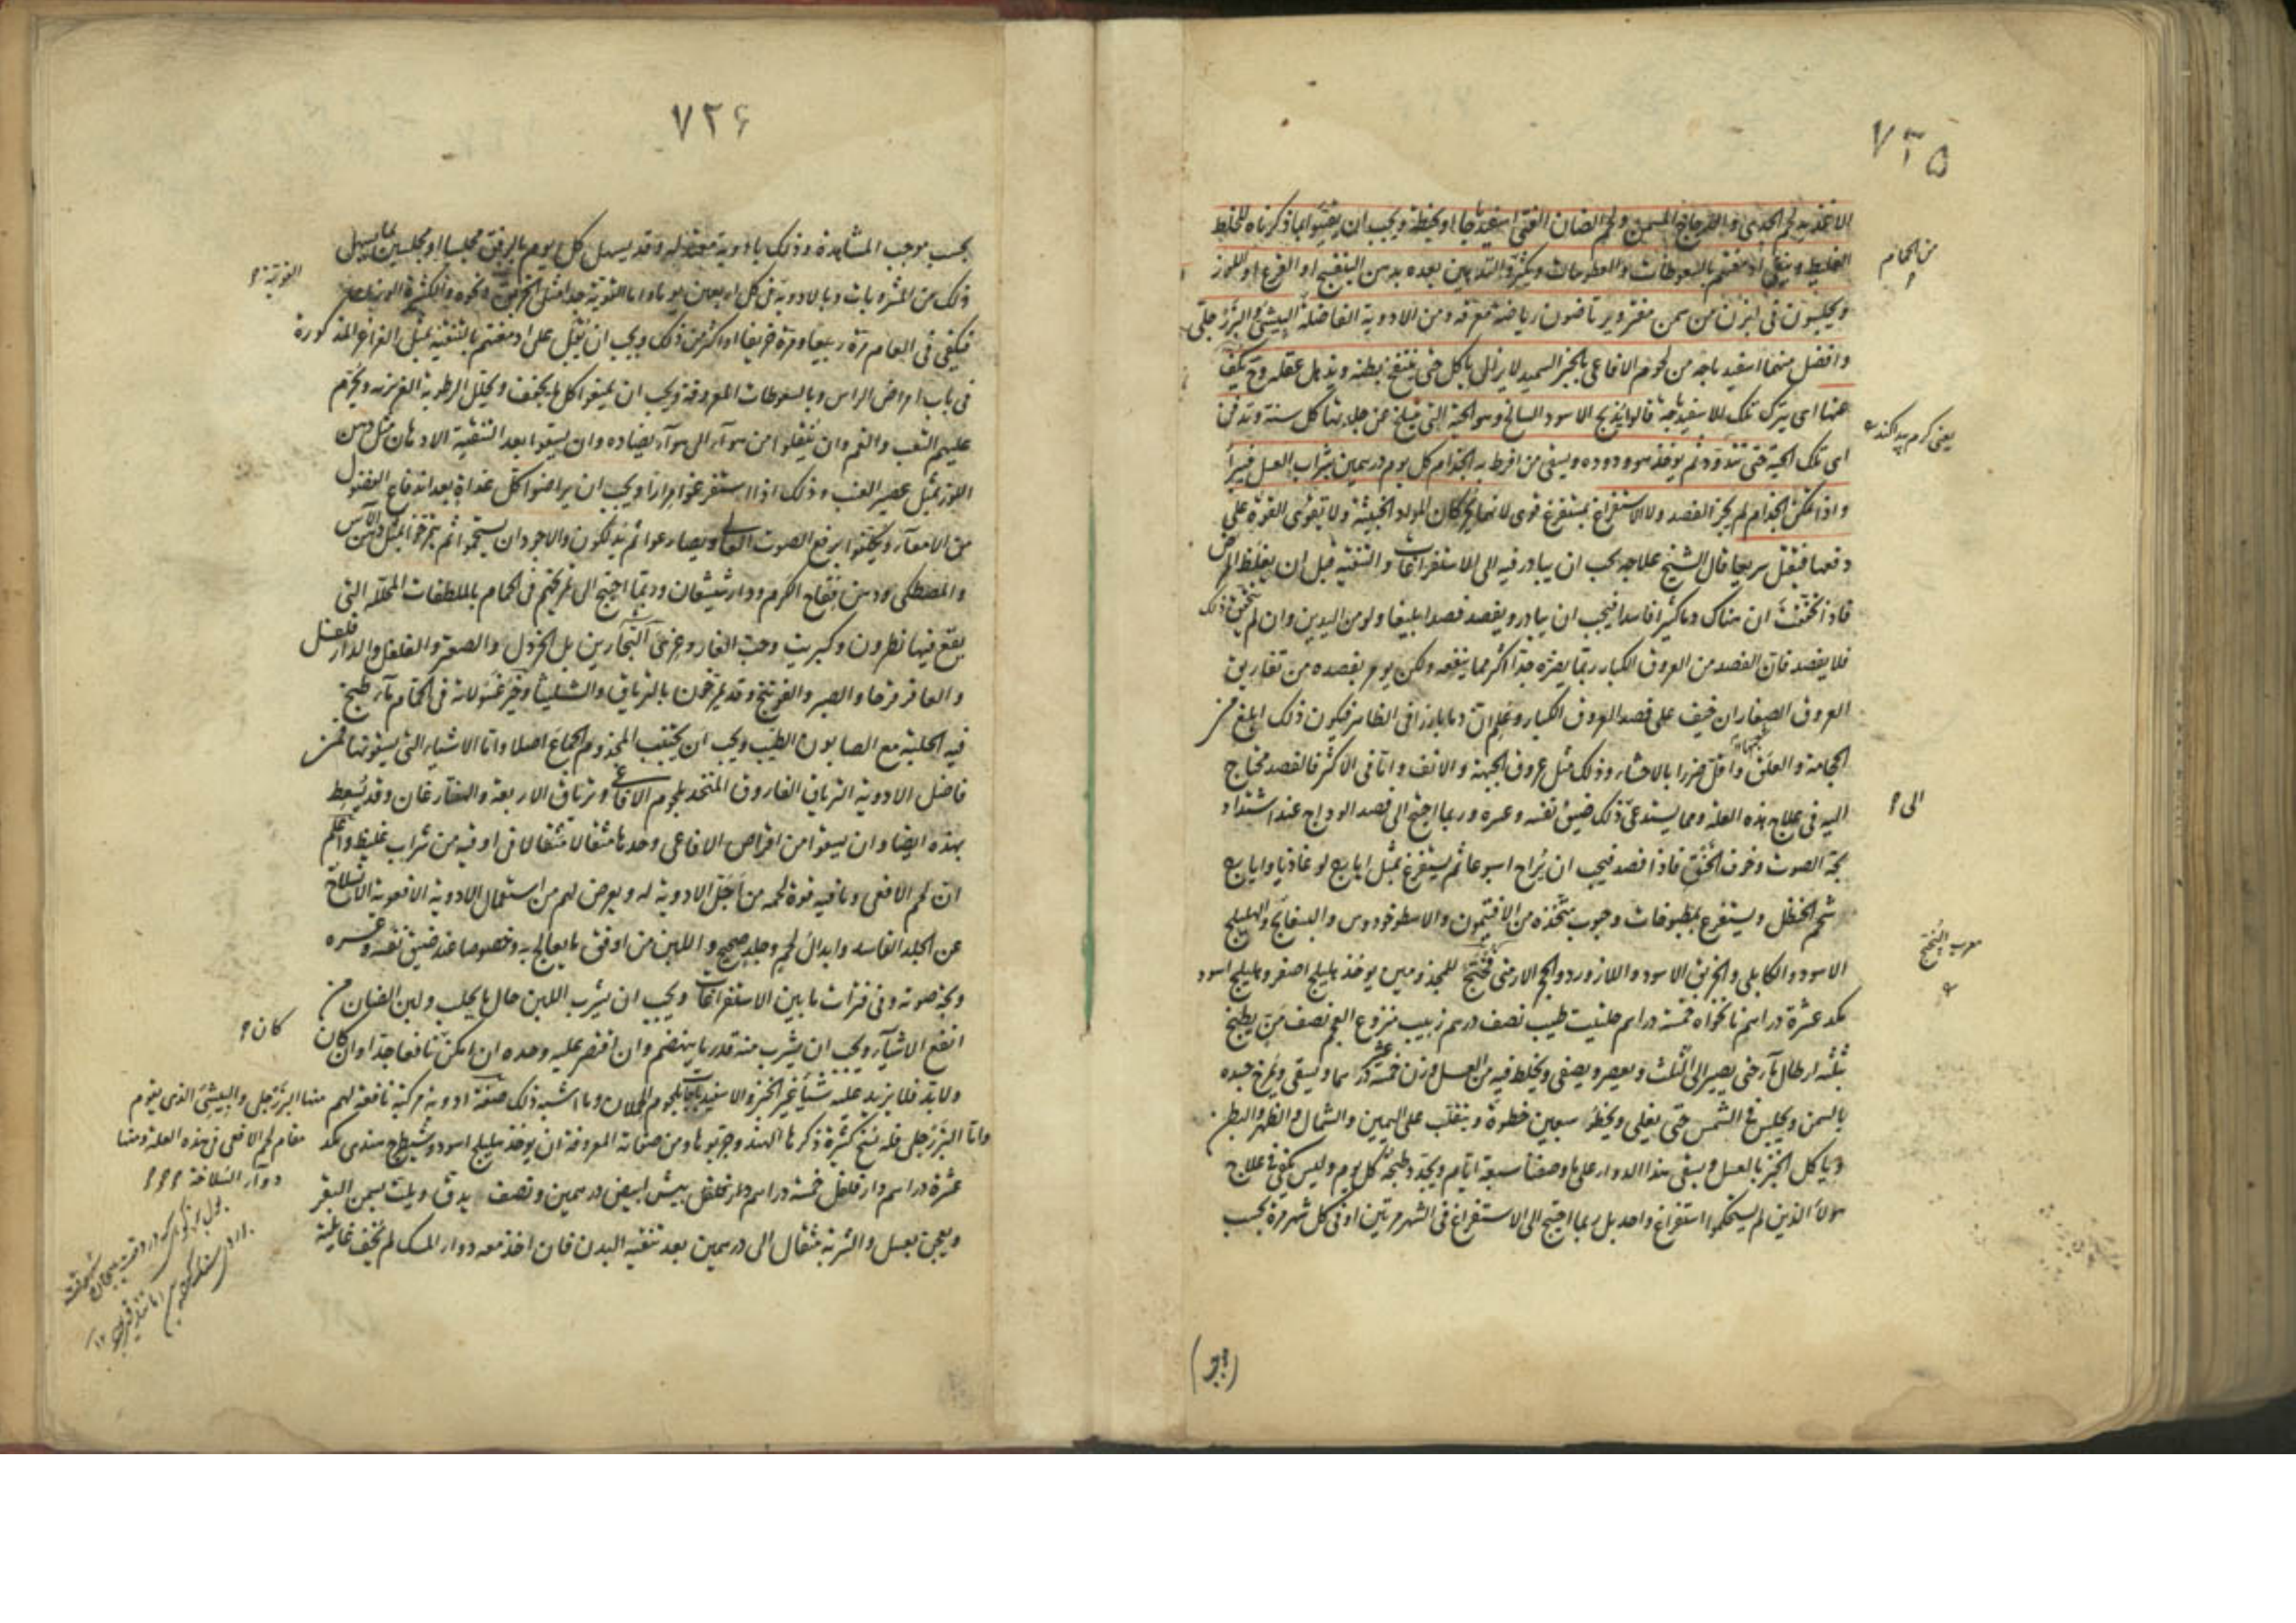 ٧٢٥
الاغذية لحم الجدي والدجاج المسمن ولحم الضان الفتى اسفيدباجا او بحنطة ويجب ان يقيئوا بما ذكرناه للخلط
الغليظ وينقى ادمغتهم بالسعوطات والعطوسات ويكثروا التدهين بعده بدهن البنفسج او القرع او اللوز
من الحمام
ويجلسون في ابزن من سمن مفتر ويرتاضون رياضة معرقة ومن الادوية الفاضلة البيشى والبزرجلى
وافضل منهما اسفيدباجه من لحوم الافاعى بالخبز السميد لا يزال ياكل حتى ينتفخ بطنه ويذهل عقله وح يكف
عنها اى يترك تلك الاسفيدباجة قالوا يذبح الاسود السالخ وهو الحية التى ينسلخ عن جلدها كل سنة وتدفن
يعنى كرم پيدا كند
اى تلك الحية حتى تتدود ثم يوخذ هو ودوده ويسقى من افرط به الجذام كل يوم درهمين بشراب العسل فيبرأ
واذا تمكن الجذام لم يجز الفصد ولا الاستفراغ بمستفرغ قوى لانهما يحركان المواد الخبيثة ولا تقوى القوة على
دفعها فيقتل سريعا قال الشيخ علاجه يجب ان يبادر فيه الى الاستفراغات والتنقية قبل ان يغلظ المرض
فاذا تحققت ان هناك دما كثيرا فاسدا فيجب ان يبادر ويفصد فصدا بليغا ولو من اليدين وان لم يتحقق ذلك
فلا يفصد فان الفصد من العروق الكبار ربما يضره جدا اكثر مما ينفعه ولكن يومر بفصده من تفاريق
العروق الصغار ان خيف على فصد العروق الكبار وعلم ان دما بارزا في الظاهر فيكون ذلك ابلغ من
الحجامة والعلق واقل ضررا بالاحشاء وذلك مثل عروق الجبهة والانف واما في الاكثر فالفصد محتاج
اليه في علاج هذه العلة ومما يستدعى ذلك ضيق نفسه وعسره وربما احتيج الى فصد الوداج عند اشتداد
الى
بحة الصوت وخوف الخنق فاذا فصد فيجب ان يراح اسبوعا ثم يستفرغ بمثل ايارج لوغاذيا وايارج
شحم الحنظل ويستفرغ بمطبوخات وحبوب متخذة من الافتيمون والاسطوخودوس والبسفايج والهليلج
الاسود والكابلى والخربق الاسود واللازورد والحجر الارمنى للمجذومين يوخذ هليلج اصفر وهليلج اسود
مكد عشرة دراهم نانخواه خمسة دراهم حلتيت طيب نصف درهم زبيب منزوع العجم نصف من يطبخ
بثلثة ارطال ماء حتى يصير الى الثلث ويعصر ويصفى ويخلط فيه من العسل وزن خمسة عشر درهما ويسقى ويمرخ جسده
بالسمن ويجلس في الشمس حتى يغلى ويخطو سبعين خطوة ويتقلب على اليمين والشمال والظهر والبطن
وياكل الخبز بالعسل ويسقى هذا الدواء على ما وصفنا سبعة ايام ويجدد طبخه كل يوم وليس يكفي في علاج
هولاء الذين لم يستحكموا استفراغ واحد بل ربما احتيج الى الاستفراغ في الشهر مرتين او في كل شهر مرة بحسب
٧٢۶
بحسب موجب المشاهدة وذلك بادوية معتدلة وقد يسهل كل يوم بالرفق مجلسا او مجلسين بما يسهل
ذلك من المشروبات وبالادوية في كل اربعين يوما واما القوية جدا مثل الخربق ونحوه
القوية
فيكفي في العام مرة ربيعا ومرة خريفا او اكثر من ذلك ويجب ان يقبل على ادمغتهم بالتنقية بمثل الغراغر المذكورة
في باب امراض الراس وبالسعوطات المعروفة ويجب ان يمنعوا كل ما يجفف ويحلل الرطوبة الغريزية ويحرم
عليهم التعب والغم وان ينقلوا من هواء الى هواء يضاده وان يسقوا بعد التنقية الادهان مثل دهن
اللوز بمثل عصير العنب وذلك اذا استفرغوا مرارا ويجب ان يراضوا كل غداة بعد اندفاع الفضول
من الامعاء ويكلفوا برفع الصوت العالى ويصارعوا ثم يدلكون والاجود ان يستحموا ثم يتمرخوا بمثل دهن الآس
والمصطكى ودهن فقاح الكرم ودارشيشعان وربما احتيج الى تمريخهم في الحمام بالملطفات المحللة التى
يقع فيها نطرون وكبريت وحب الغار وغرى النجارين بل الخردل والصعتر والفلفل والدارفلفل
والعاقرقرحا والصبر والفرتنج وقد يمرخون بالترياق والشليثا وخير غسولاته في الحمام ماء طبخ
فيه الحلبة مع الصابون الطيب ويجب ان يجتنب المجذوم الجماع اصلا واما الاشياء التى يسقونها فمن
فاضل الادوية الترياق الفاروق المتخذ بلحوم الافاعى وترياق الاربعة وقد يسعط
بهذه ايضا وان يسقوا من اقراص الافاعى وحدها مثقالا مثقالا في اوقية من شراب غليظ واعلم
ان لحم الافعى وما فيه قوة لحمه من اجل الادوية له ويعرض لهم من استعمال الادوية الافعوية الانسلاخ
عن الجلد الفاسد وابدال لحم وجلد صحيح واللبن من اوفق ما يعالج به وخصوصا عند ضيق نفسه وعسره
وبحة صوته وفي فترات ما بين الاستفراغات ويجب ان يشرب اللبن حال ما يحلب ولبن الضان من
انفع الاشياء ويجب ان يشرب منه قدر ما ينهضم وان اقتصر عليه وحده ان امكن كان نافعا جدا وان كان
كان
ولا بد فلا يزيد عليه شيأ غير الخبز والاسفيدباجات بلحوم الحملان وما اشبه ذلك صفة ادوية مركبة نافعة لهم منها البزرجلى والبيشى الذى يقوم
مقام لحم الافعى في هذه العلة ومنها
دواء السلاخة
واما البزرجلى فله نسخ كثيرة ذكرها الهند وجربوها ومن صفاته المعروفة ان يوخذ هليلج اسود وشيطرج هندى مكد
عشرة دراهم دارفلفل خمسة دراهم بيش ابيض درهمين ونصف يدق ويلت بسمن البقر
ويعجن بعسل والشربة مثقال الى درهمين بعد تنقية البدن فان اخذ معه دواء المسك لم يخف غايلته